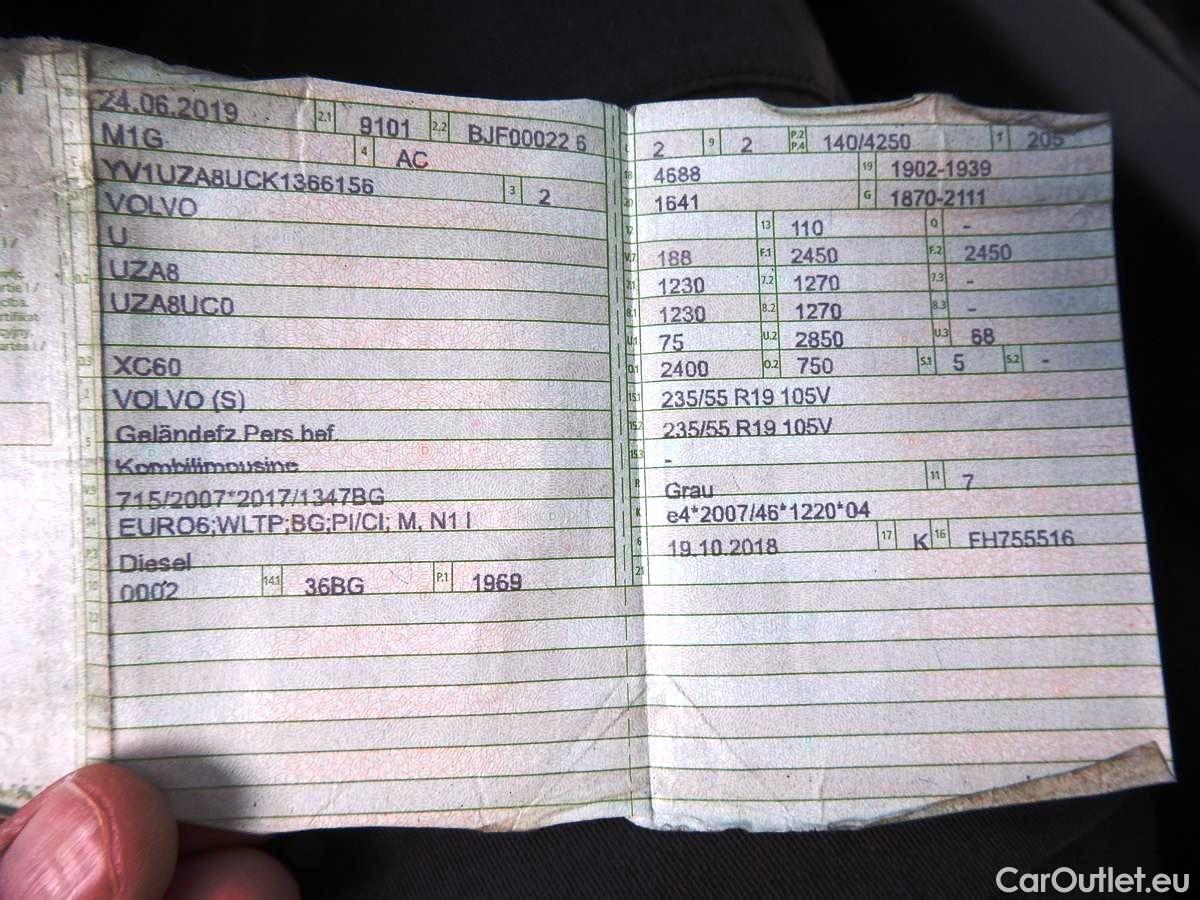 24.06.2019 2.1 9101 2.2 BJF00022 6
M1G 4 AC
YV1UZA8UCK1366156 3 2
VOLVO
U
UZA8
UZA8UC0
D.3 XC60
2 VOLVO (S)
5 Geländefz.Pers.bef.
Kombilimousine
V.9 715/2007*2017/1347BG
14 EURO6;WLTP;BG;PI/CI; M, N1 I
P.3 Diesel
10 0002 14.1 36BG P.1 1969
22
2 9 2 P.2 P.4 140/4250 T 205
18 4688 19 1902-1939
20 1641 G 1870-2111
12 13 110 Q -
V.7 188 F.1 2450 F.2 2450
7.1 1230 7.2 1270 7.3 -
8.1 1230 8.2 1270 8.3 -
U.1 75 U.2 2850 U.3 68
O.1 2400 O.2 750 S.1 5 S.2 -
15.1 235/55 R19 105V
15.2 235/55 R19 105V
15.3 -
R Grau 11 7
K e4*2007/46*1220*04
6 19.10.2018 17 K 16 FH755516
21
CarOutlet.eu